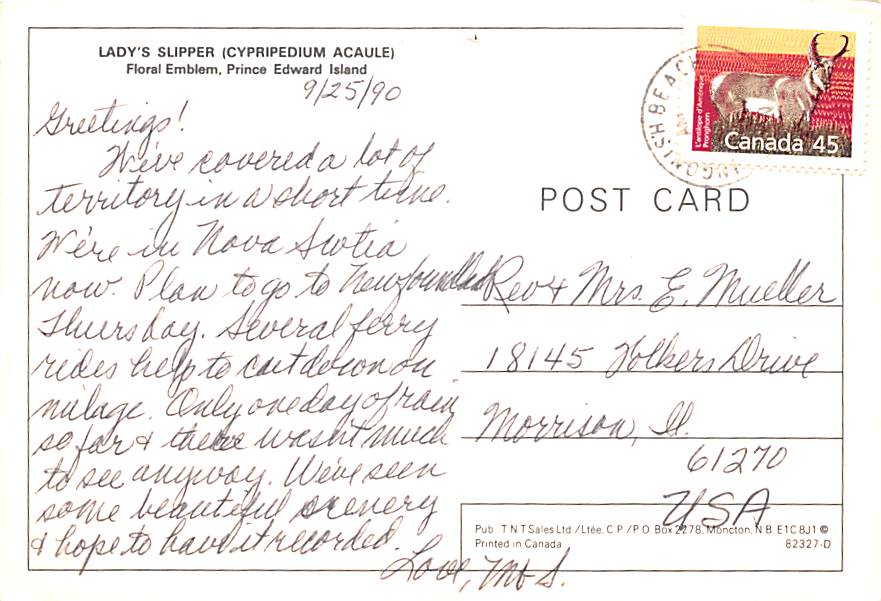 LADY'S SLIPPER (CYPRIPEDIUM ACAULE)
Floral Emblem, Prince Edward Island
9/25/90
Greetings!
We've covered a lot of
territory in a short time.
We're in Nova Scotia
now. Plan to go to Newfoundland
Thursday. Several ferry
rides help to cut down on
milage. Only one day of rain
so far & there wasn't much
to see anyway. We've seen
some beautiful scenery
& hope to have it recorded.
Love, M & S.
INGONISH BEACH
AM
L'antilope d'Amérique
Pronghorn
Canada 45
POST CARD
Rev & Mrs. E. Mueller
18145 Holkers Drive
Morrison, Il.
61270
USA
Pub. TNT Sales Ltd./Ltée, C.P./P.O. Box 2278, Moncton, N.B. E1C 8J1 ©
Printed in Canada
82327-D